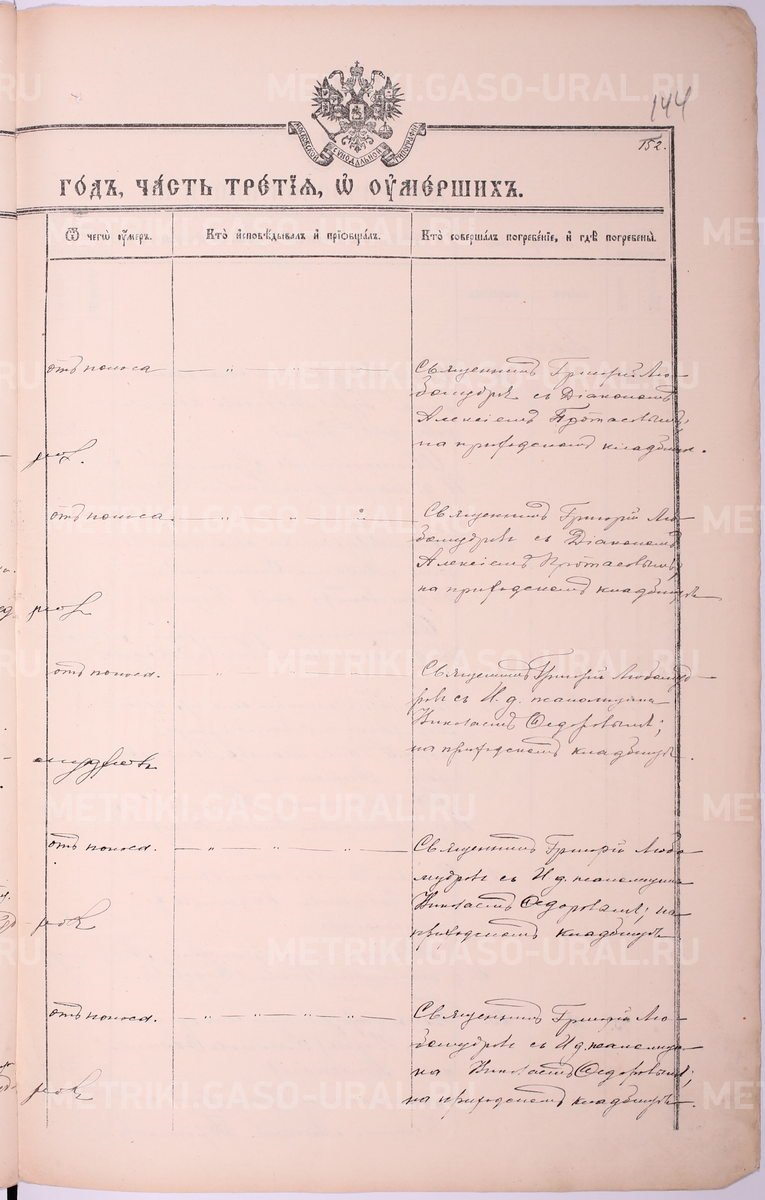 144
152.
МОСКОВСКОЙ СѴНОДАЛЬНОЙ ТИПОГРАФІИ
ГО́ДЪ, ЧА́СТЬ ТРЕ́ТІѦ, Ѡ ОУМЕ́РШИХЪ.
Ѿ чегѡ̀ оу́меръ.
Кто̀ и҆сповѣ́дывалъ и҆ прїѡбща́лъ.
Кто̀ соверша́лъ погребе́нїе, и҆ гдѣ̀ погребены̀.
отъ поноса
Священникъ Григорій Лю-
бомудровъ съ Діакономъ
Алексіемъ Протасовымъ;
на приходскомъ кладбищѣ.
отъ поноса.
Священникъ Григорій Лю-
бомудровъ съ Діакономъ
Алексіемъ Протасовымъ;
на приходскомъ кладбищѣ
отъ поноса.
Священникъ Григорій Любомуд-
ровъ съ И. д. псаломщика
Николаемъ Ѳедоровымъ;
на приходскомъ кладбищѣ.
отъ поноса.
Священникъ Григорій Любо-
мудровъ съ И. д. псаломщика
Николаемъ Ѳедоровымъ; на
приходскомъ кладбищѣ.
отъ поноса.
Священникъ Григорій Лю-
бомудровъ съ И. д. псаломщи-
ка Николаемъ Ѳедоровымъ;
на приходскомъ кладбищѣ.
METRIKI.GASO-URAL.RU